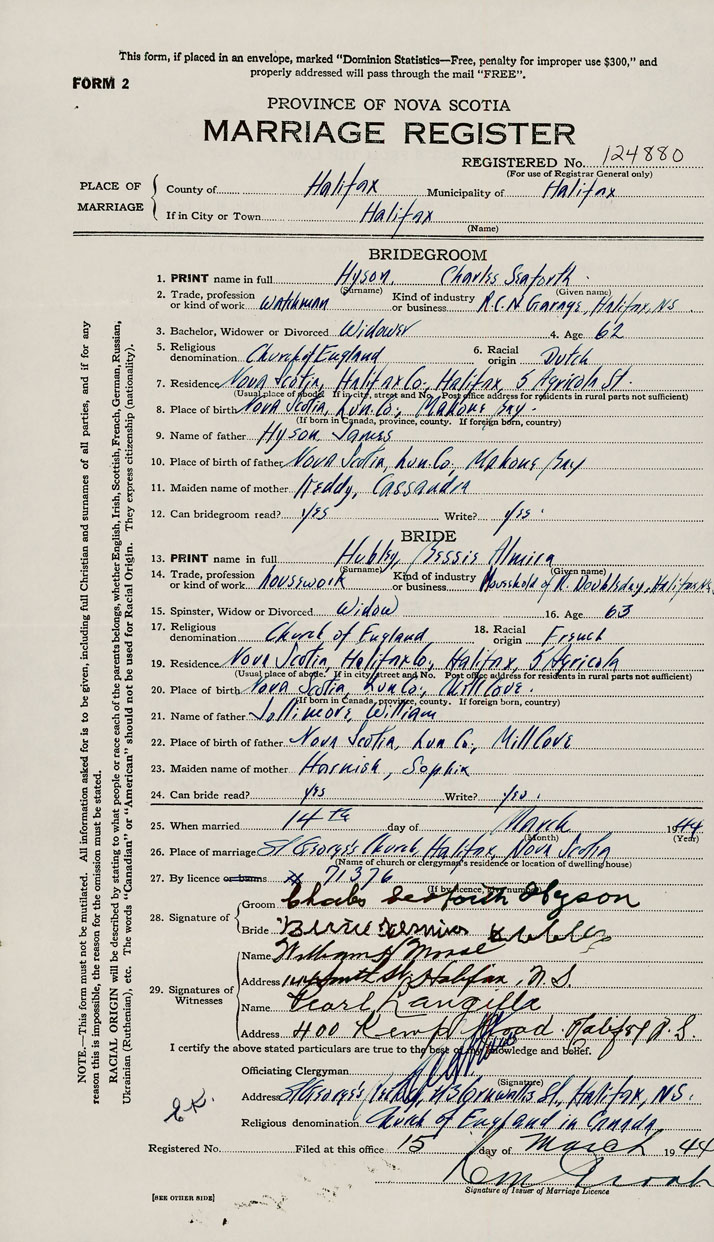 This form, if placed in an envelope, marked "Dominion Statistics—Free, penalty for improper use $300," and
properly addressed will pass through the mail "FREE".
FORM 2
PROVINCE OF NOVA SCOTIA
MARRIAGE REGISTER
REGISTERED No. 124880
(For use of Registrar General only)
PLACE OF MARRIAGE
County of Halifax Municipality of Halifax
If in City or Town Halifax
(Name)
BRIDEGROOM
1. PRINT name in full Hyson, Charles Seaforth.
(Surname) (Given name)
2. Trade, profession or kind of work Watchman Kind of industry or business R.C.N. Garage, Halifax, N.S.
3. Bachelor, Widower or Divorced Widower 4. Age 62
5. Religious denomination Church of England 6. Racial origin Dutch
7. Residence Nova Scotia, Halifax Co., Halifax, 5 Agricola St.
(Usual place of abode. If in city, street and No. Post office address for residents in rural parts not sufficient)
8. Place of birth Nova Scotia, Lun. Co., Mahone Bay.
(If born in Canada, province, county. If foreign born, country)
9. Name of father Hyson James
10. Place of birth of father Nova Scotia, Lun. Co., Mahone Bay
11. Maiden name of mother Keddy, Cassandra
12. Can bridegroom read? yes Write? yes.
BRIDE
13. PRINT name in full Hubley, Bessie Almira
(Surname) (Given name)
14. Trade, profession or kind of work housework Kind of industry or business Household of R. Doubleday, Halifax N.S.
15. Spinster, Widow or Divorced Widow 16. Age 63
17. Religious denomination Church of England 18. Racial origin French
19. Residence Nova Scotia, Halifax Co., Halifax, 5 Agricola
(Usual place of abode. If in city street and No. Post office address for residents in rural parts not sufficient)
20. Place of birth Nova Scotia, Lun. Co., Mill Cove.
(If born in Canada, province, county. If foreign born, country)
21. Name of father Jollimore, William
22. Place of birth of father Nova Scotia, Lun Co., Mill Cove
23. Maiden name of mother Harnish, Sophia
24. Can bride read? yes Write? yes.
25. When married 14th day of March 1944
(Month) (Year)
26. Place of marriage St George's Church, Halifax, Nova Scotia
(Name of church or clergyman's residence or location of dwelling house)
27. By licence or banns 71376
(If by licence, the number)
28. Signature of
Groom Charles Seaforth Hyson
Bride
29. Signatures of Witnesses
Name William H Morse
Address Smith St, Halifax, N.S.
Name Pearl Langille
Address 400 Kemp Road Halifax N.S.
I certify the above stated particulars are true to the best of my knowledge and belief.
Officiating Clergyman
(Signature)
Address St George's 43 Cornwallis St, Halifax, N.S.
Religious denomination Church of England in Canada
Registered No. Filed at this office 15 day of March 1944
Signature of Issuer of Marriage Licence
[SEE OTHER SIDE]
NOTE.—This form must not be mutilated. All information asked for is to be given, including full Christian and surnames of all parties, and if for any
reason this is impossible, the reason for the omission must be stated.
RACIAL ORIGIN will be described by stating to what people or race each of the parents belongs, whether English, Irish, Scottish, French, German, Russian,
Ukrainian (Ruthenian), etc. The words "Canadian" or "American" should not be used for Racial Origin. They express citizenship (nationality).